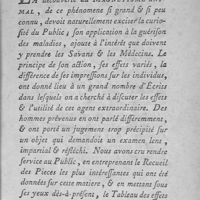 LA découverte du MAGNÉTISME ANI-
MAL, de ce phénomene si grand & si peu
connu, devoit naturellement exciter la curio-
sité du Public; son application à la guérison
des maladies, ajoute à l'intérêt que doivent
y prendre les Savans & les Médecins. Le
principe de son action, ses effets variés, la
différence de ses impressions sur les individus,
ont donné lieu à un grand nombre d'Ecrits
dans lesquels on a cherché à discuter les effets
& l'utilité de cet agent extraordinaire. Des
hommes prévenus en ont parlé différemment,
& ont porté un jugement trop précipité sur
un objet qui demandoit un examen lent,
impartial & réfléchi. Nous avons cru rendre
service au Public, en entreprenant le Recueil
des Pieces les plus intéressantes qui ont été
données sur cette matiere, & en mettant sous
ses yeux dès-à-présent, le Tableau des effets